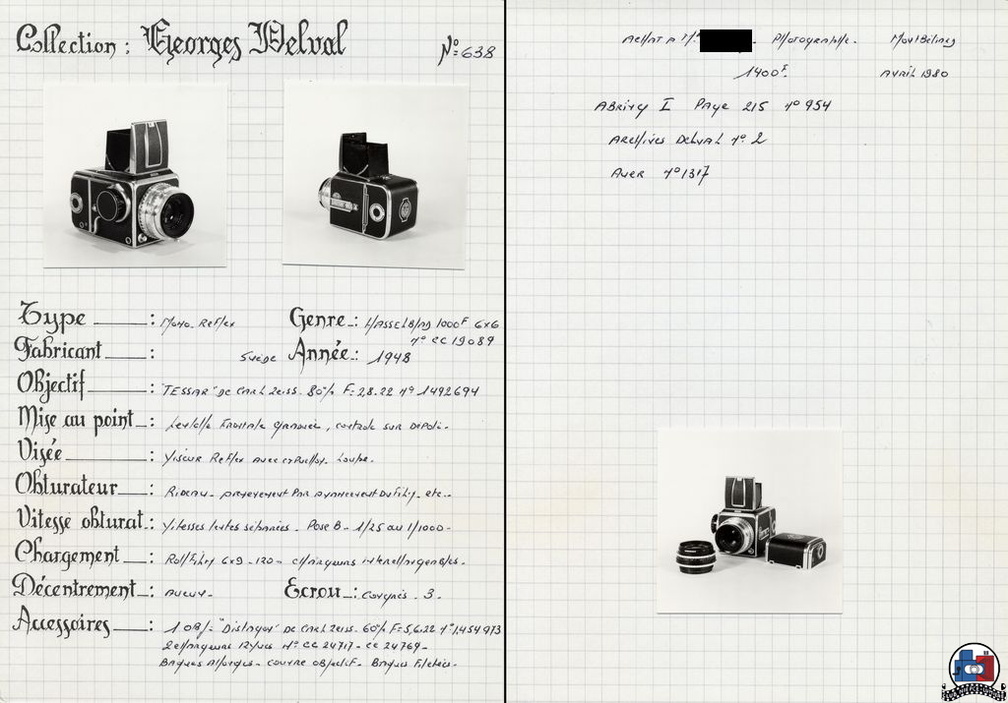 Collection : Georges Delval
N° 638
Type : Mono. Reflex
Genre : Hasselblad 1000F 6x6
n° CC 19089
Fabricant : Suède
Année : 1948
Objectif : "TESSAR" de Carl Zeiss. 80% F=2,8.22 n° 1492694
Mise au point : Lentille Frontale, contrôle sur Dépoli.
Visée : Viseur Reflex avec capuchon. Loupe.
Obturateur : Rideau - par avancement du film, etc..
Vitesse obturat. : Vitesses lentes séparées - Pose B - 1/25 au 1/1000 -
Chargement : Rollfilm 6x9 - 120 - Magasins interchangeables.
Décentrement : Aucun -
Ecrou : Congrès - 3 -
Accessoires : 1 obj = "Distagon" de Carl Zeiss. 60% F=5,6.22 n° 1,454973
2 Magasins n° CC 24717 - CC 24769 -
Bagues - couvre objectif - Bagues Filetées -
Achat à M. Photographe. Montbéliard
1400F. Avril 1980
Abring I Page 215 n° 954
Archives Delval n° 2
Auer n° 1317